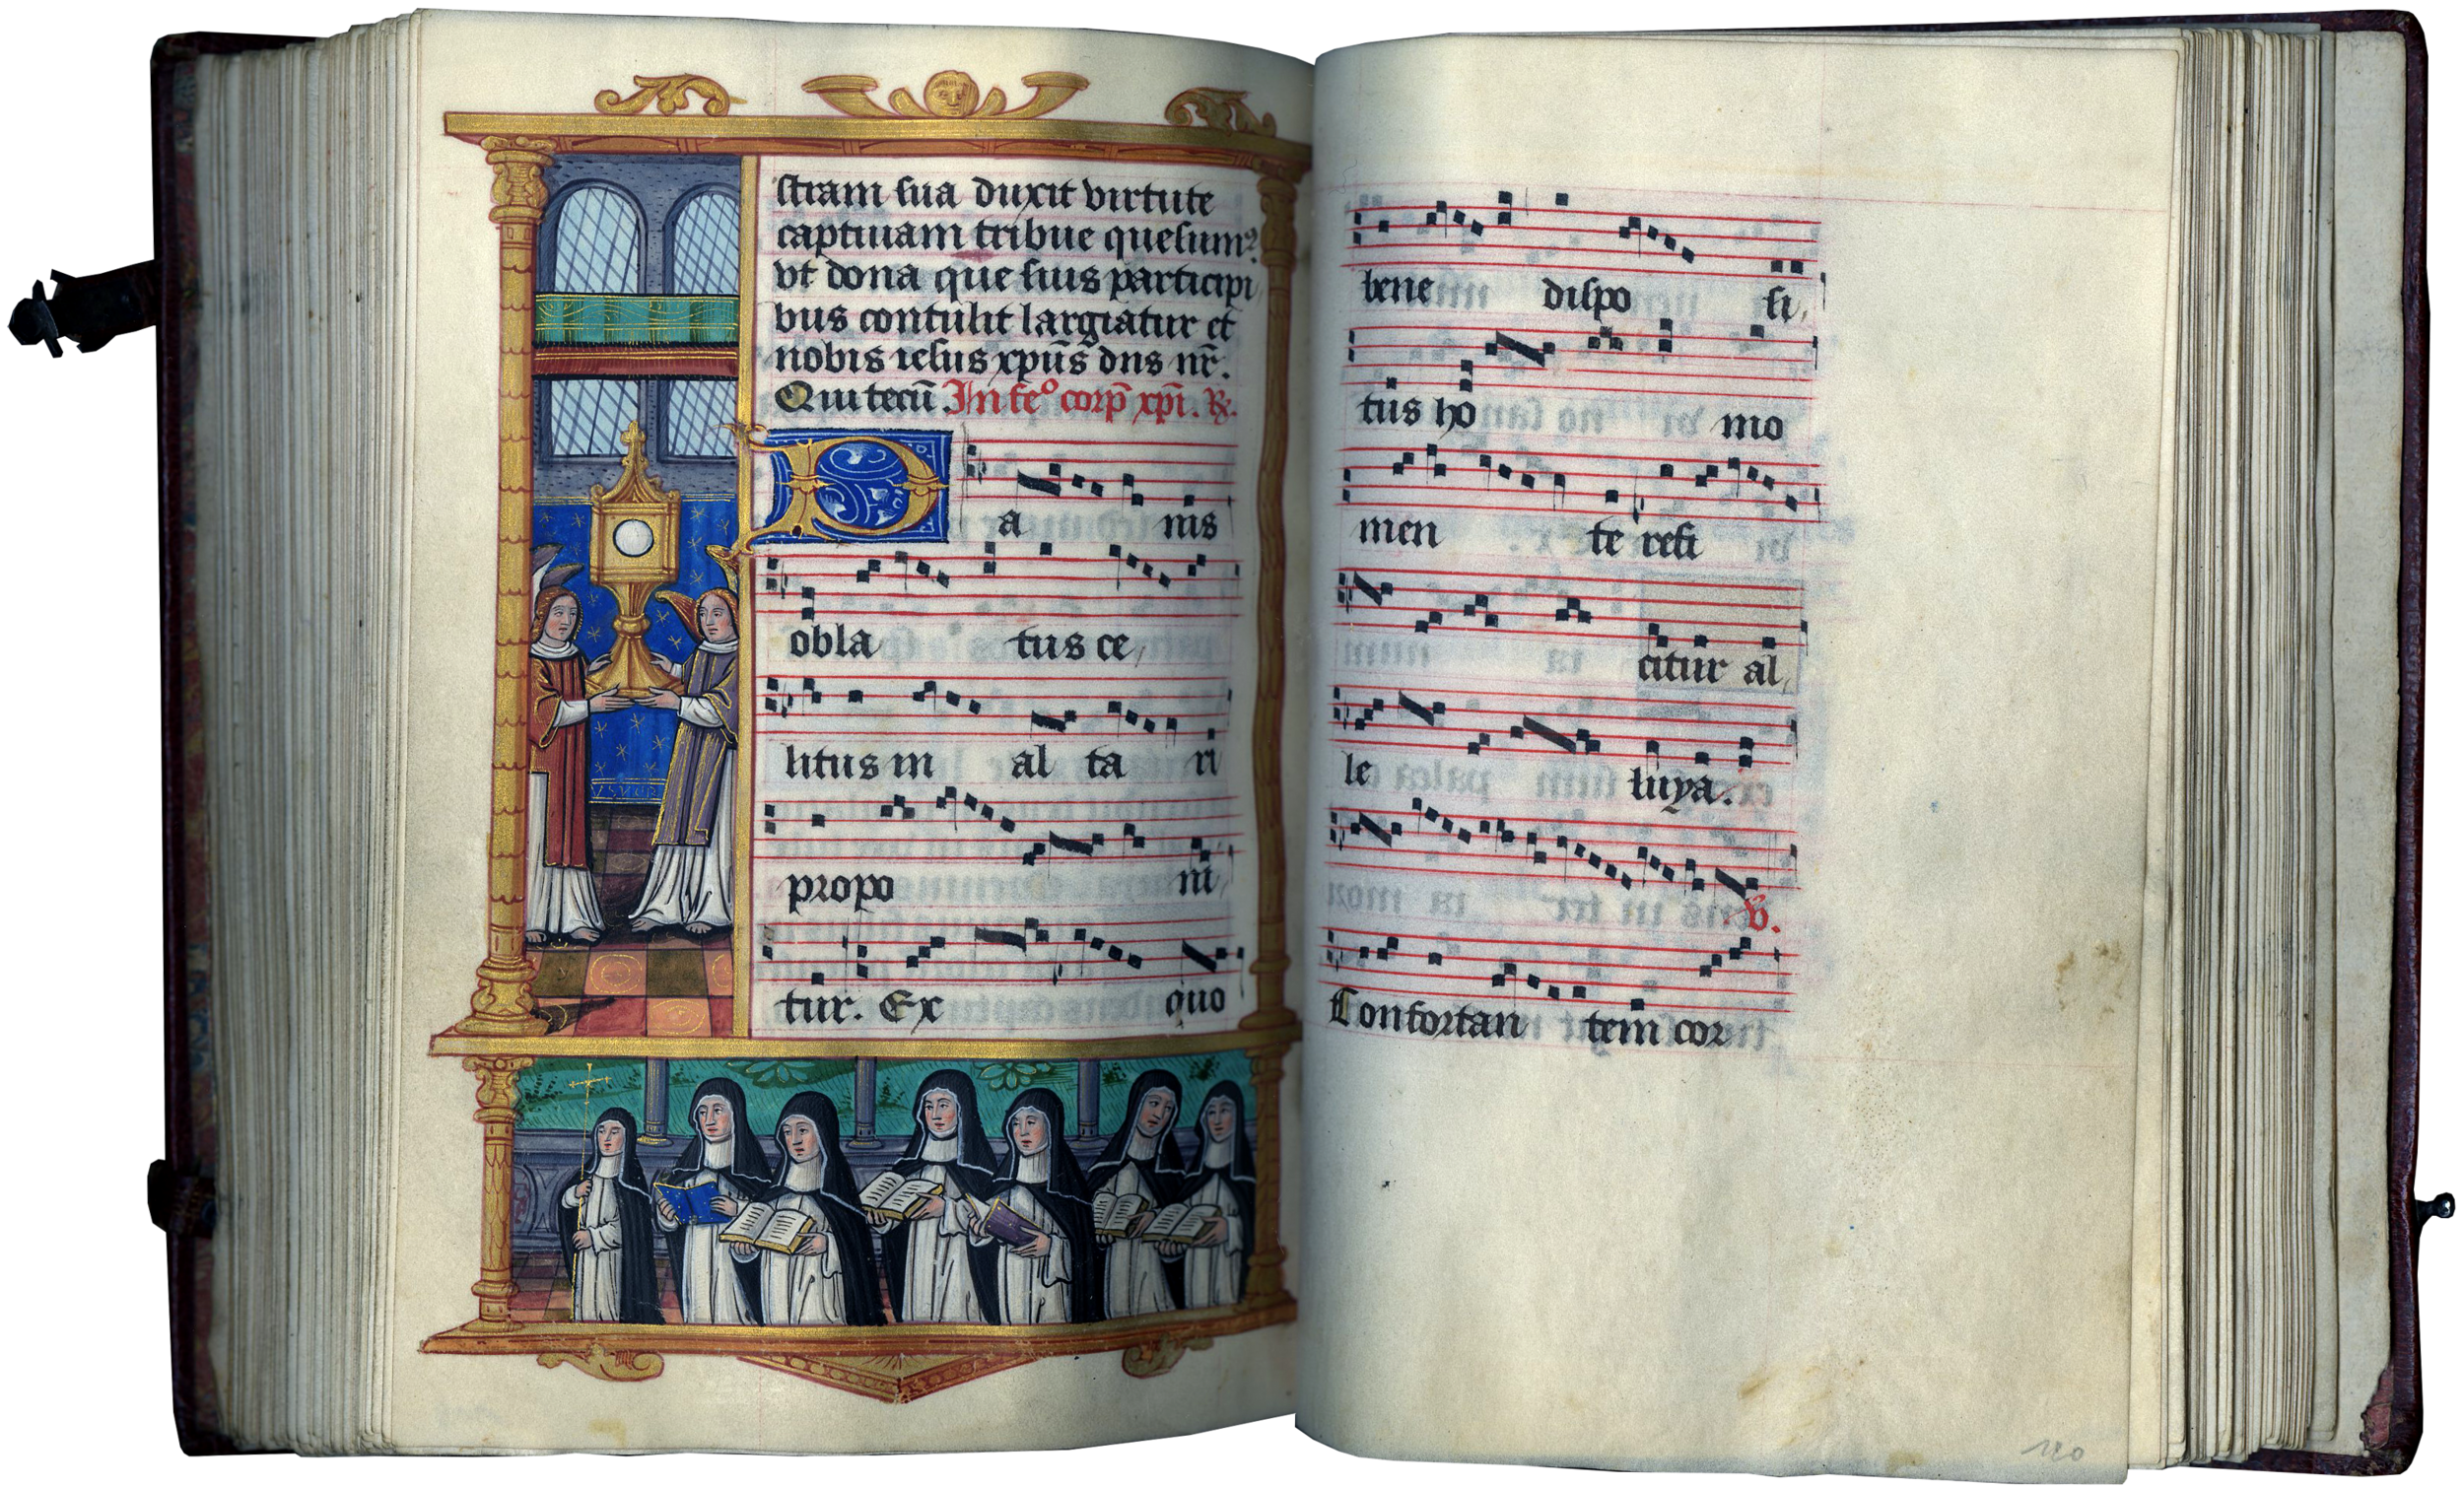 stram sua duxit virtute
captiuam tribue quesumꝰ.
vt dona que suis participi
bus contulit largiatur et
nobis iesus xpūs dns nr̄.
Qui tecū. In feº corp̄ xp̄i. ℟.
P a nis
obla tus ce,
litus in al ta ri
propo ni,
tur. Ex quo
bene dispo si,
tus ho mo
men te refi
citur al,
le luya.
℣.
Confortan tem cor
120